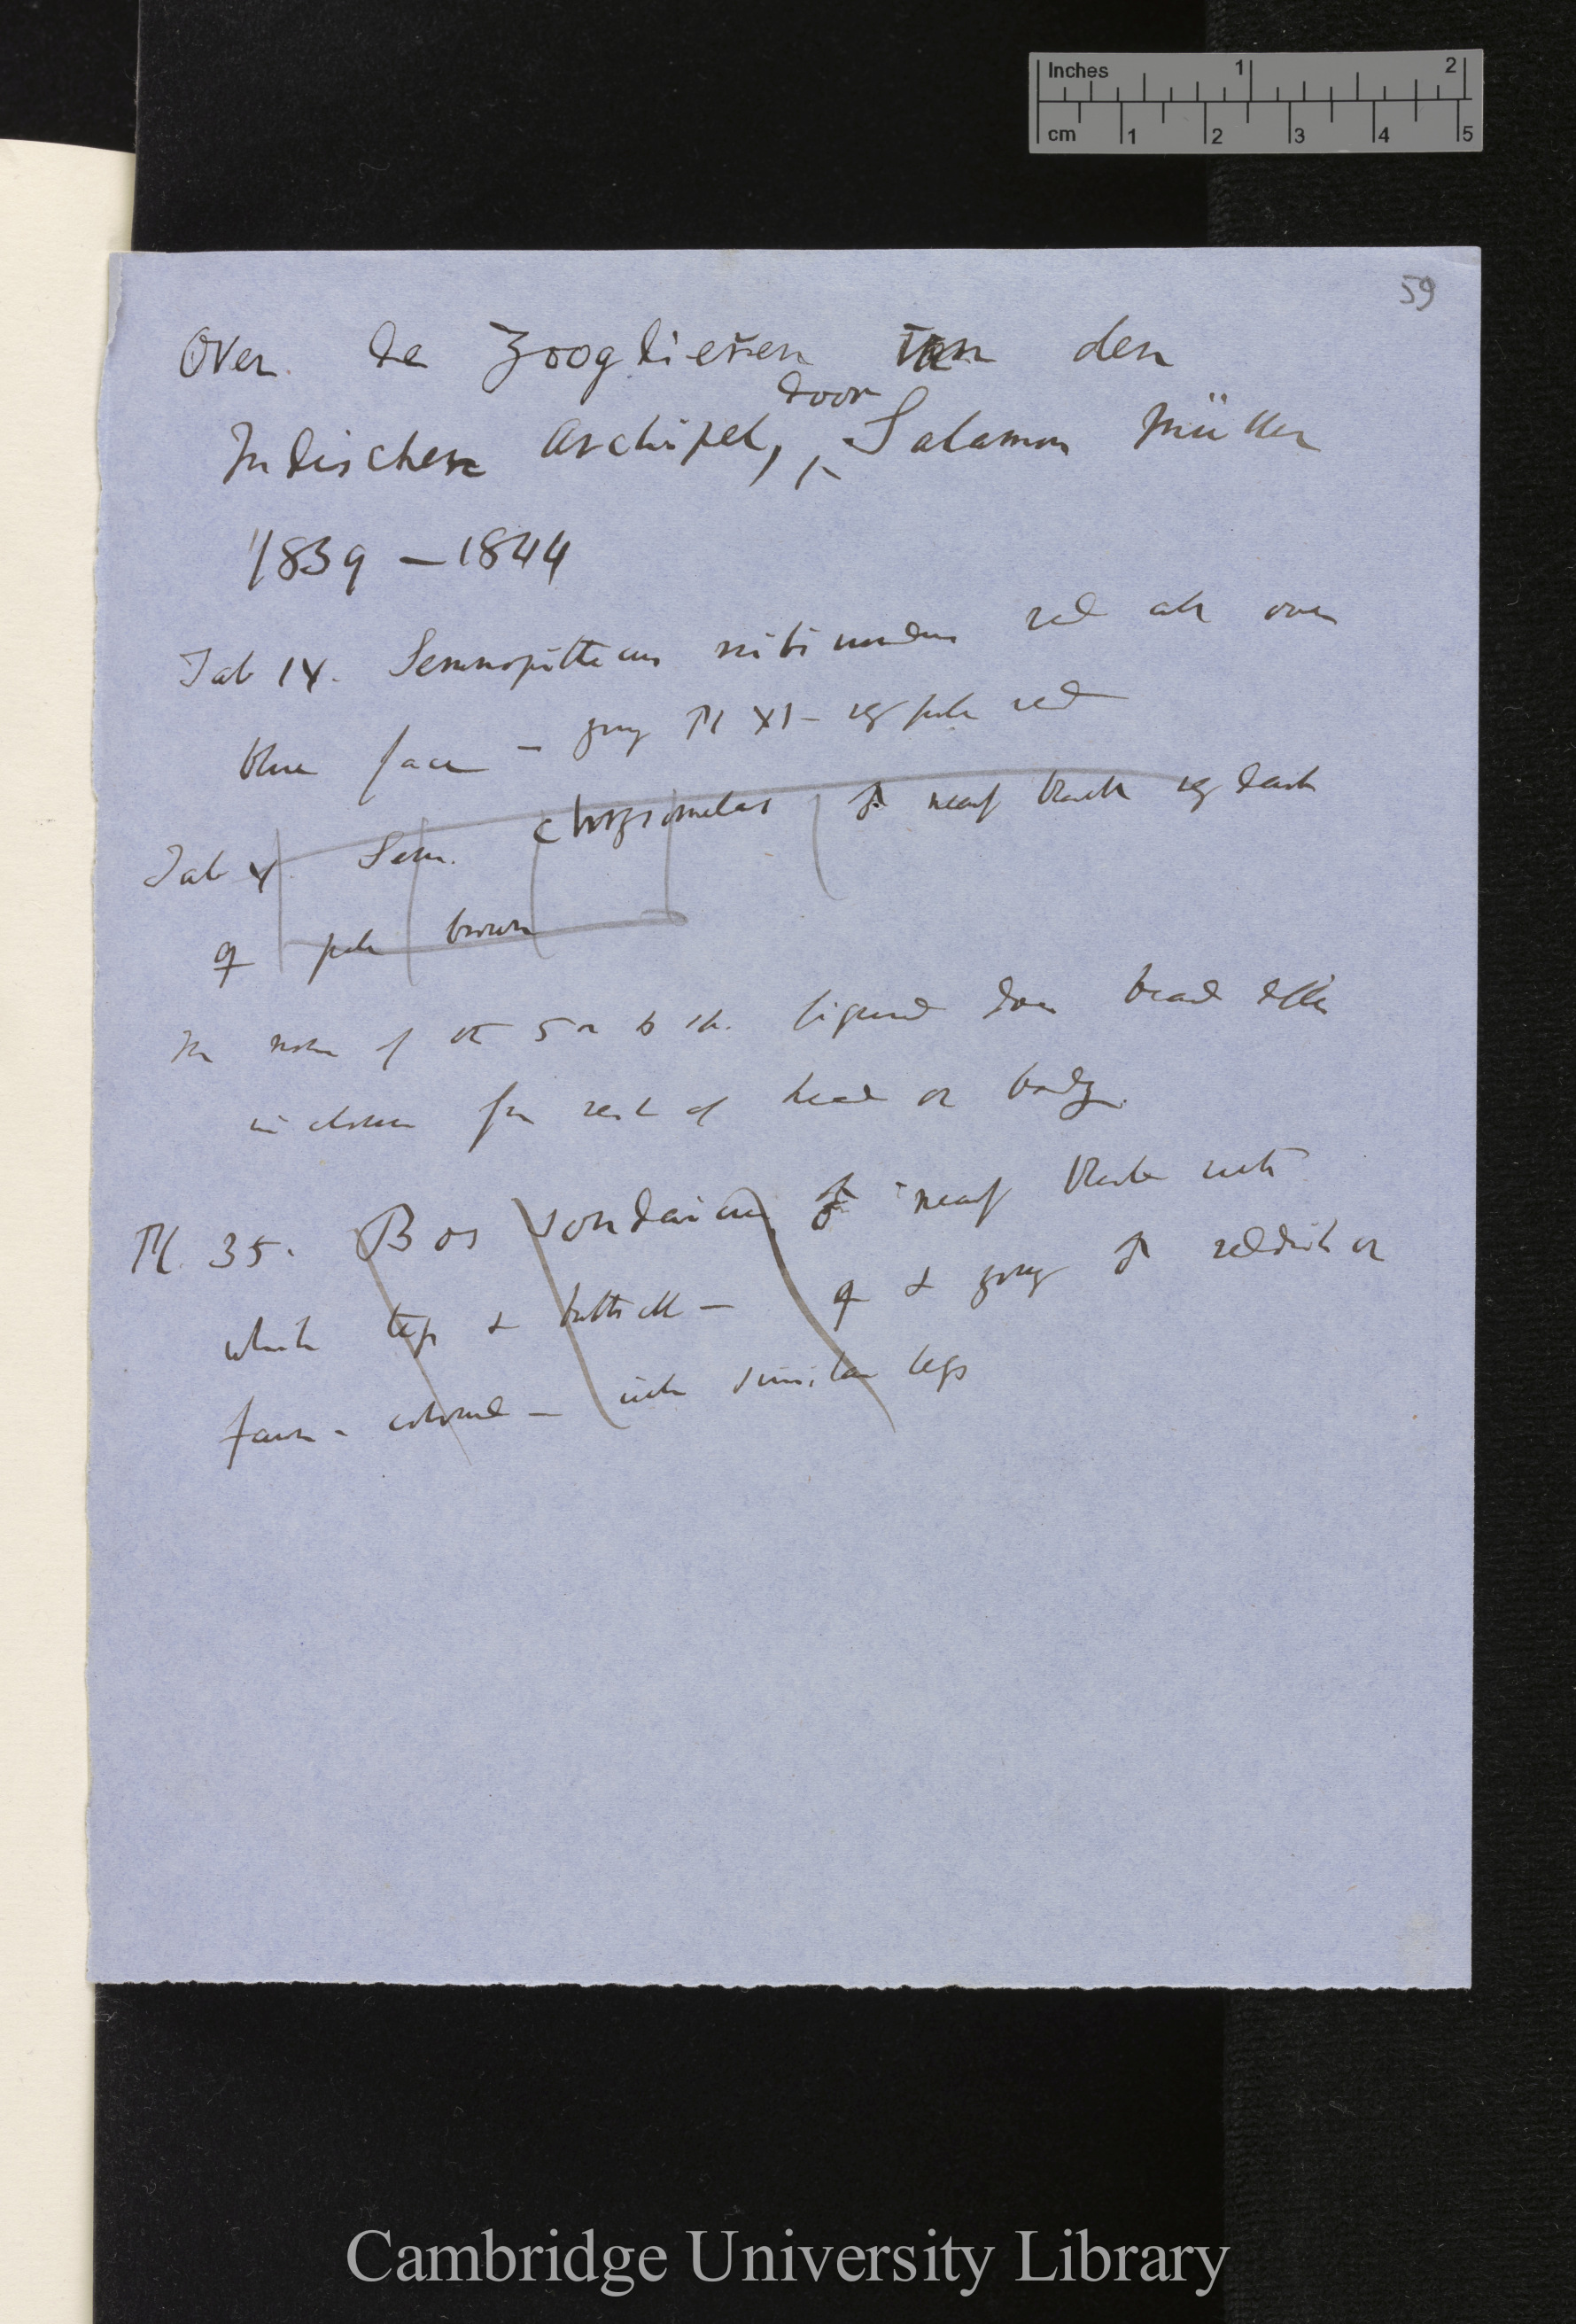 Inches 1 2
cm 1 2 3 4 5
59
Over de Zoogdieren van den
door
Indischen Archipel, Salamon Müller
1839 – 1844
Tab IX. Semnopithecus rubicundus red all over
blue face – young Pl XI – pale red
Tab X. Sem. chrysomelas ♂ nearly black dark
♀ pale brown
In none of the 5 or 6 sp. figured does beard differ
in colour from rest of head or body.
Pl. 35. Bos sondaicus ♂ nearly black with
white legs & buttocks – ♀ & young ♂ reddish or
fawn-coloured – with similar legs
Cambridge University Library